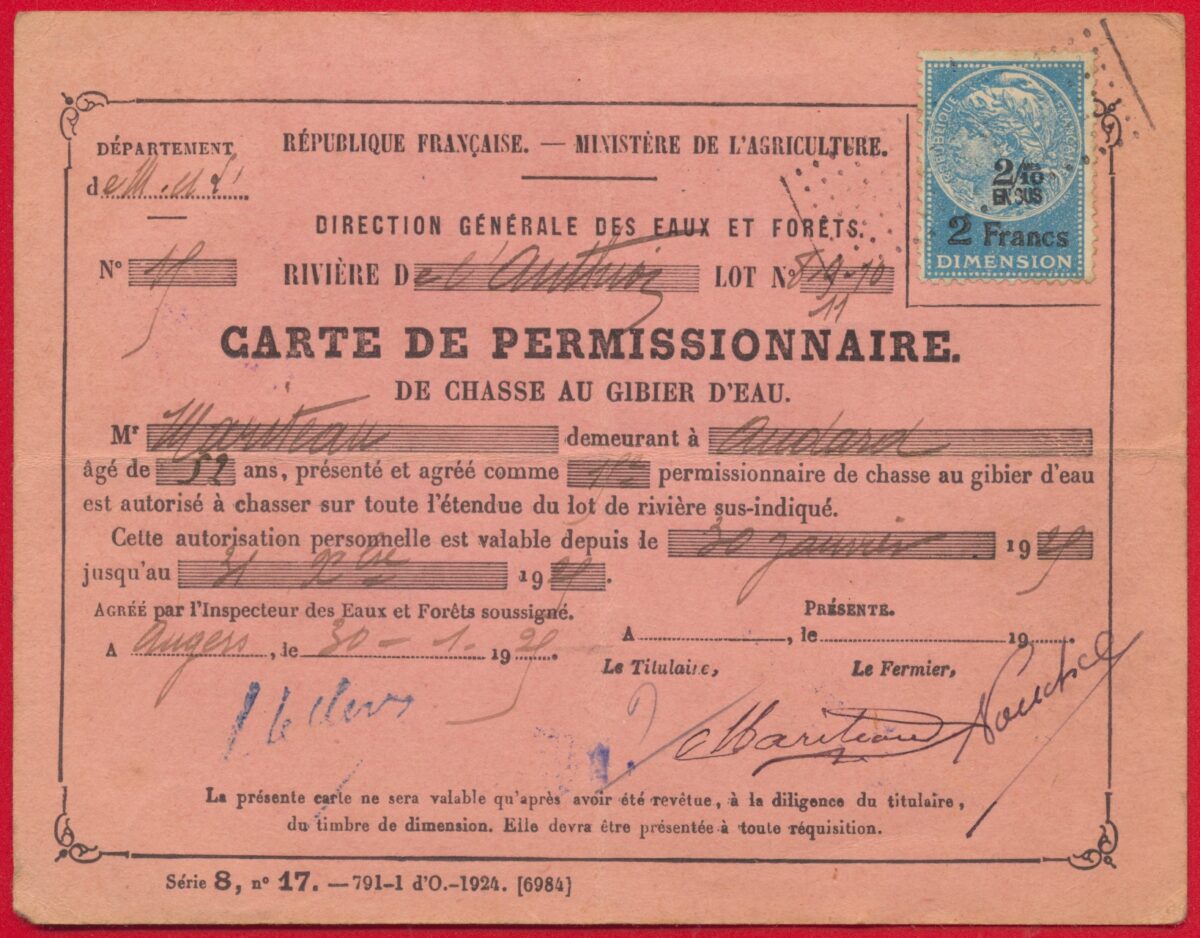 DÉPARTEMENT
de M. et L.
RÉPUBLIQUE FRANÇAISE. — MINISTÈRE DE L'AGRICULTURE.
DIRECTION GÉNÉRALE DES EAUX ET FORÊTS.
RÉPUBLIQUE FRANÇAISE
2/10 EN SUS
2 Francs
DIMENSION
Nº RIVIÈRE De l'Authion LOT Nº 8-9-10
11
CARTE DE PERMISSIONNAIRE.
DE CHASSE AU GIBIER D'EAU.
Mr Mariteau demeurant à Andard
âgé de 52 ans, présenté et agréé comme permissionnaire de chasse au gibier d'eau
est autorisé à chasser sur toute l'étendue du lot de rivière sus-indiqué.
Cette autorisation personnelle est valable depuis le 30 janvier 1925
jusqu'au 31 Xbre 1925.
AGRÉÉ par l'Inspecteur des Eaux et Forêts soussigné.
A Angers, le 30-1-1925.
PRÉSENTE.
A , le 19 .
Le Titulaire, Le Fermier,
Mariteau
La présente carte ne sera valable qu'après avoir été revêtue, à la diligence du titulaire,
du timbre de dimension. Elle devra être présentée à toute réquisition.
Série 8, nº 17. — 791-1 d'O.-1924. [6984]